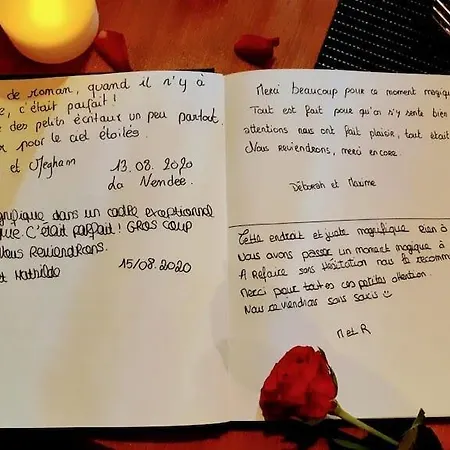 de roman, quand il n'y à
, c'était parfait!
des petits écritaux un peu partout.
pour le ciel étoilés.
et Megham
13.08.2020
La Vendée.
gnifique dans un cadre exceptionnel
que. C'était parfait! Gros coup
Nous Reviendrons.
et Mathilde
15/08.2020
Merci beaucoup pour ce moment magique
Tout est fait pour qu'on s'y sente bien
attentions nous ont fait plaisir, tout était
Nous reviendrons, merci encore.
Déborah et Maxime
Cette endrait et juste magnifique rien à
Nous avons passer un moment magique à
A Refaire sans Hésitation nous la recomm
Merci pour toutes ces petites attention.
Nous reviendrons sans soucis
M et R